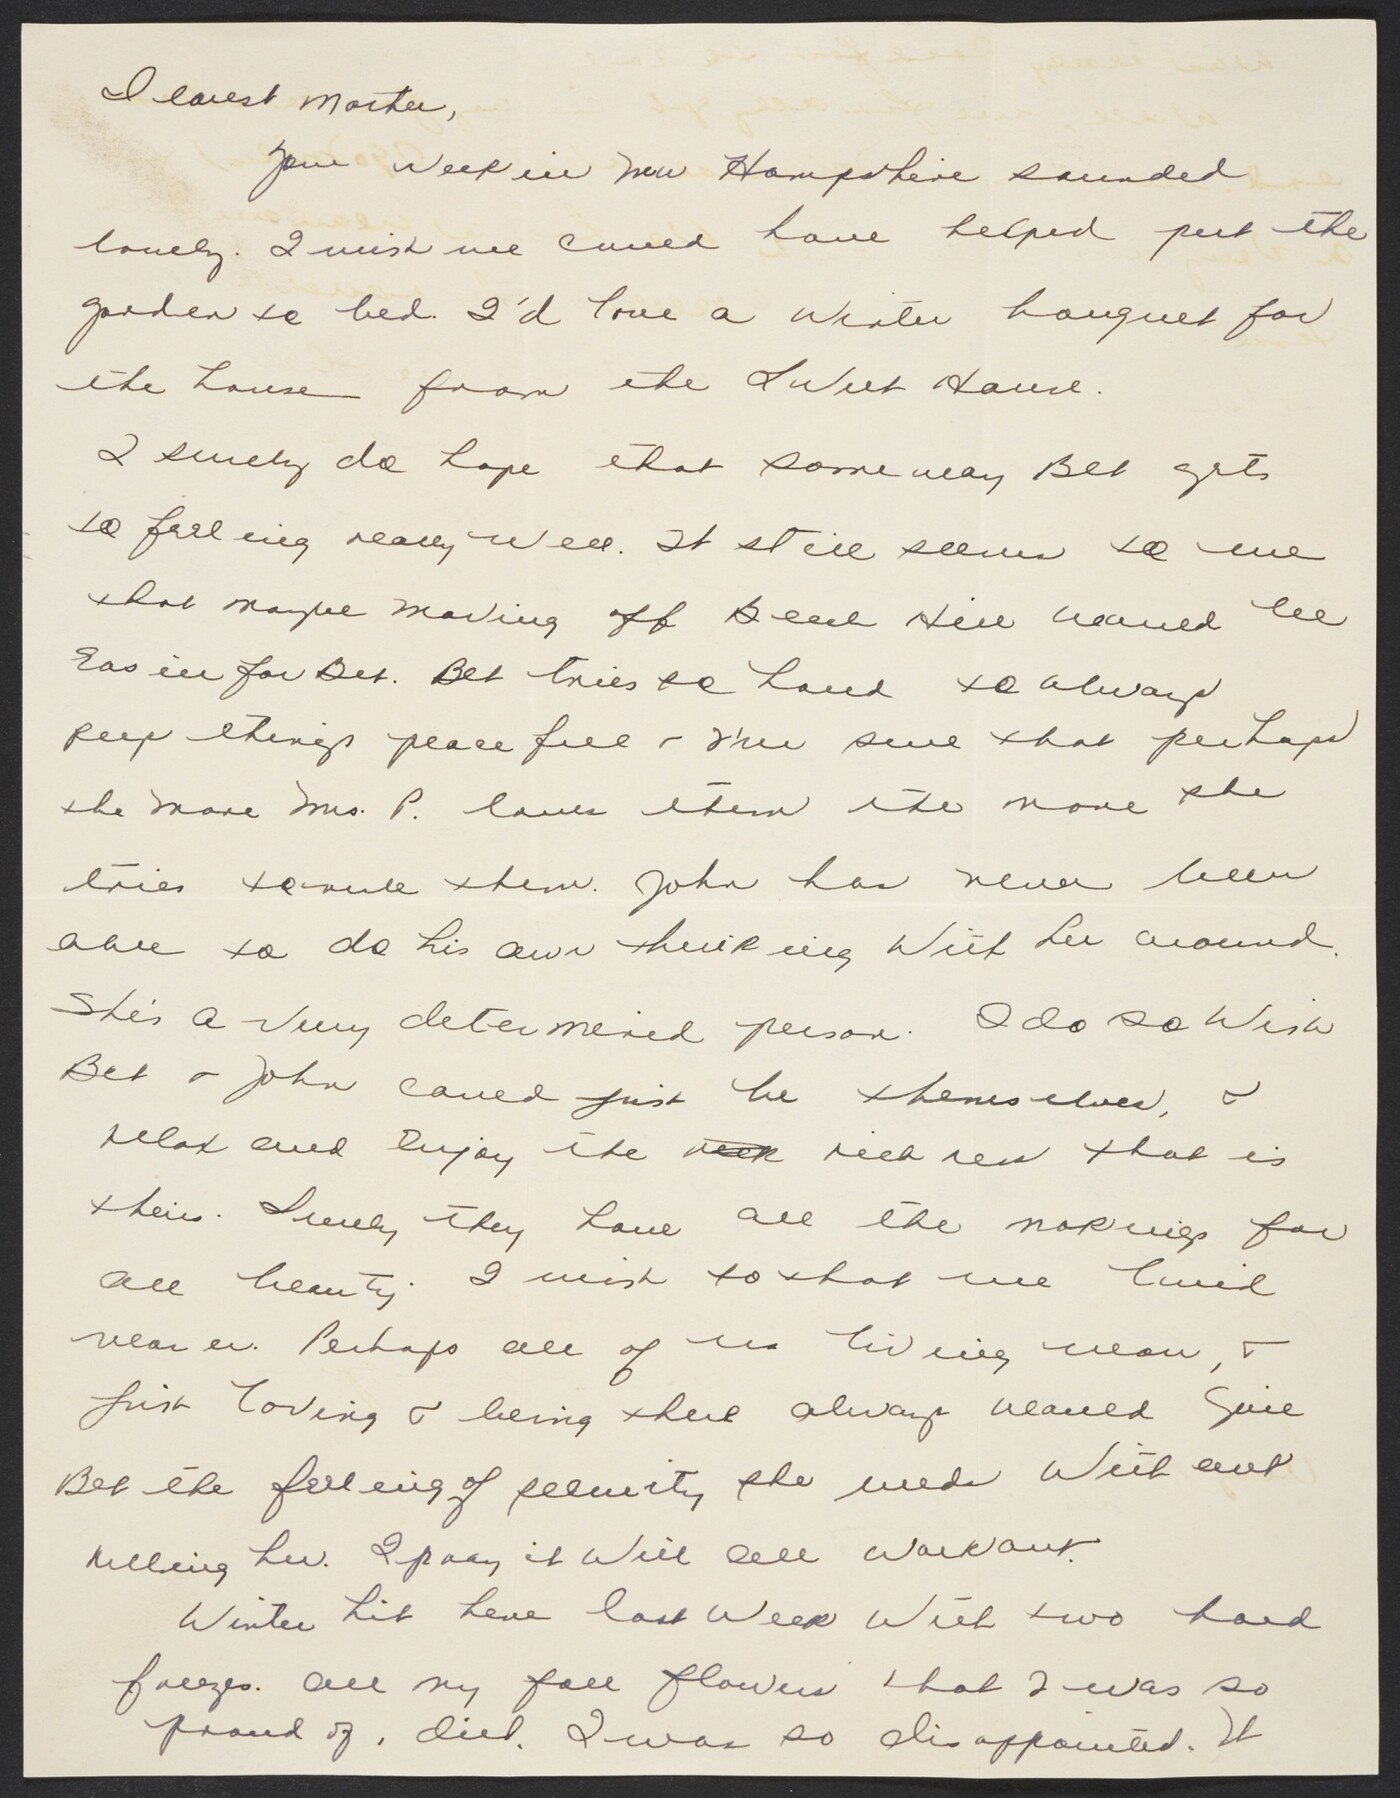 Dearest Mother,
Your week in New Hampshire sounded
lovely. I wish we could have helped put the
garden to bed. I'd love a winter bouquet for
the house from the Sweet House.
I surely do hope that some way Bet gets
to feeling really well. It still seems to me
that maybe moving off Beech Hill would be
easier for Bet. Bet tries so hard to always
keep things peaceful & I'm sure that perhaps
the more Mrs. P. loves them the more she
tries to rule them. John has never been
able to do his own thinking with her around.
She's a very determined person. I do so wish
Bet & John could just be themselves, &
relax and enjoy the richness that is
theirs. Surely they have all the makings for
all beauty. I wish so that we lived
nearer. Perhaps all of us living near, &
just loving & being there always would give
Bet the feeling of security she needs without
ruling her. I pray it will all work out.
Winter hit here last week with two hard
freezes. All my fall flowers that I was so
proud of, died. I was so disappointed. It